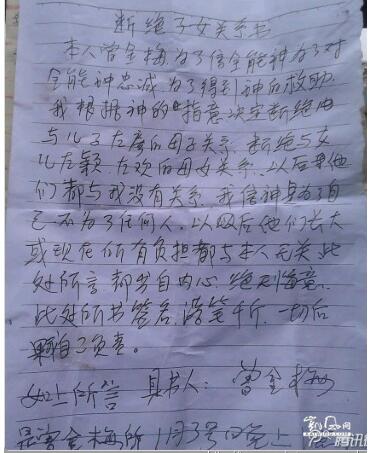 断绝子女关系书
本人曾金梅为了信全能神为了对
全能神忠诚为了得到神的救助
我根据神的指意决定断绝
与儿子左 的母子关系 断绝与女
儿左颖、左欢的母女关系、以后
们都与我没有关系、我信神是为了自
己不为了任何人、以后他们长大
或现在所有负担都与本人无关、此
处所言都出自内心、绝无 意、
此处所书签名、 笔千斤、一切后
果自己负责。
如上所言 具书人: 曾金梅
是曾金梅所 11月3号的晚上
腾讯